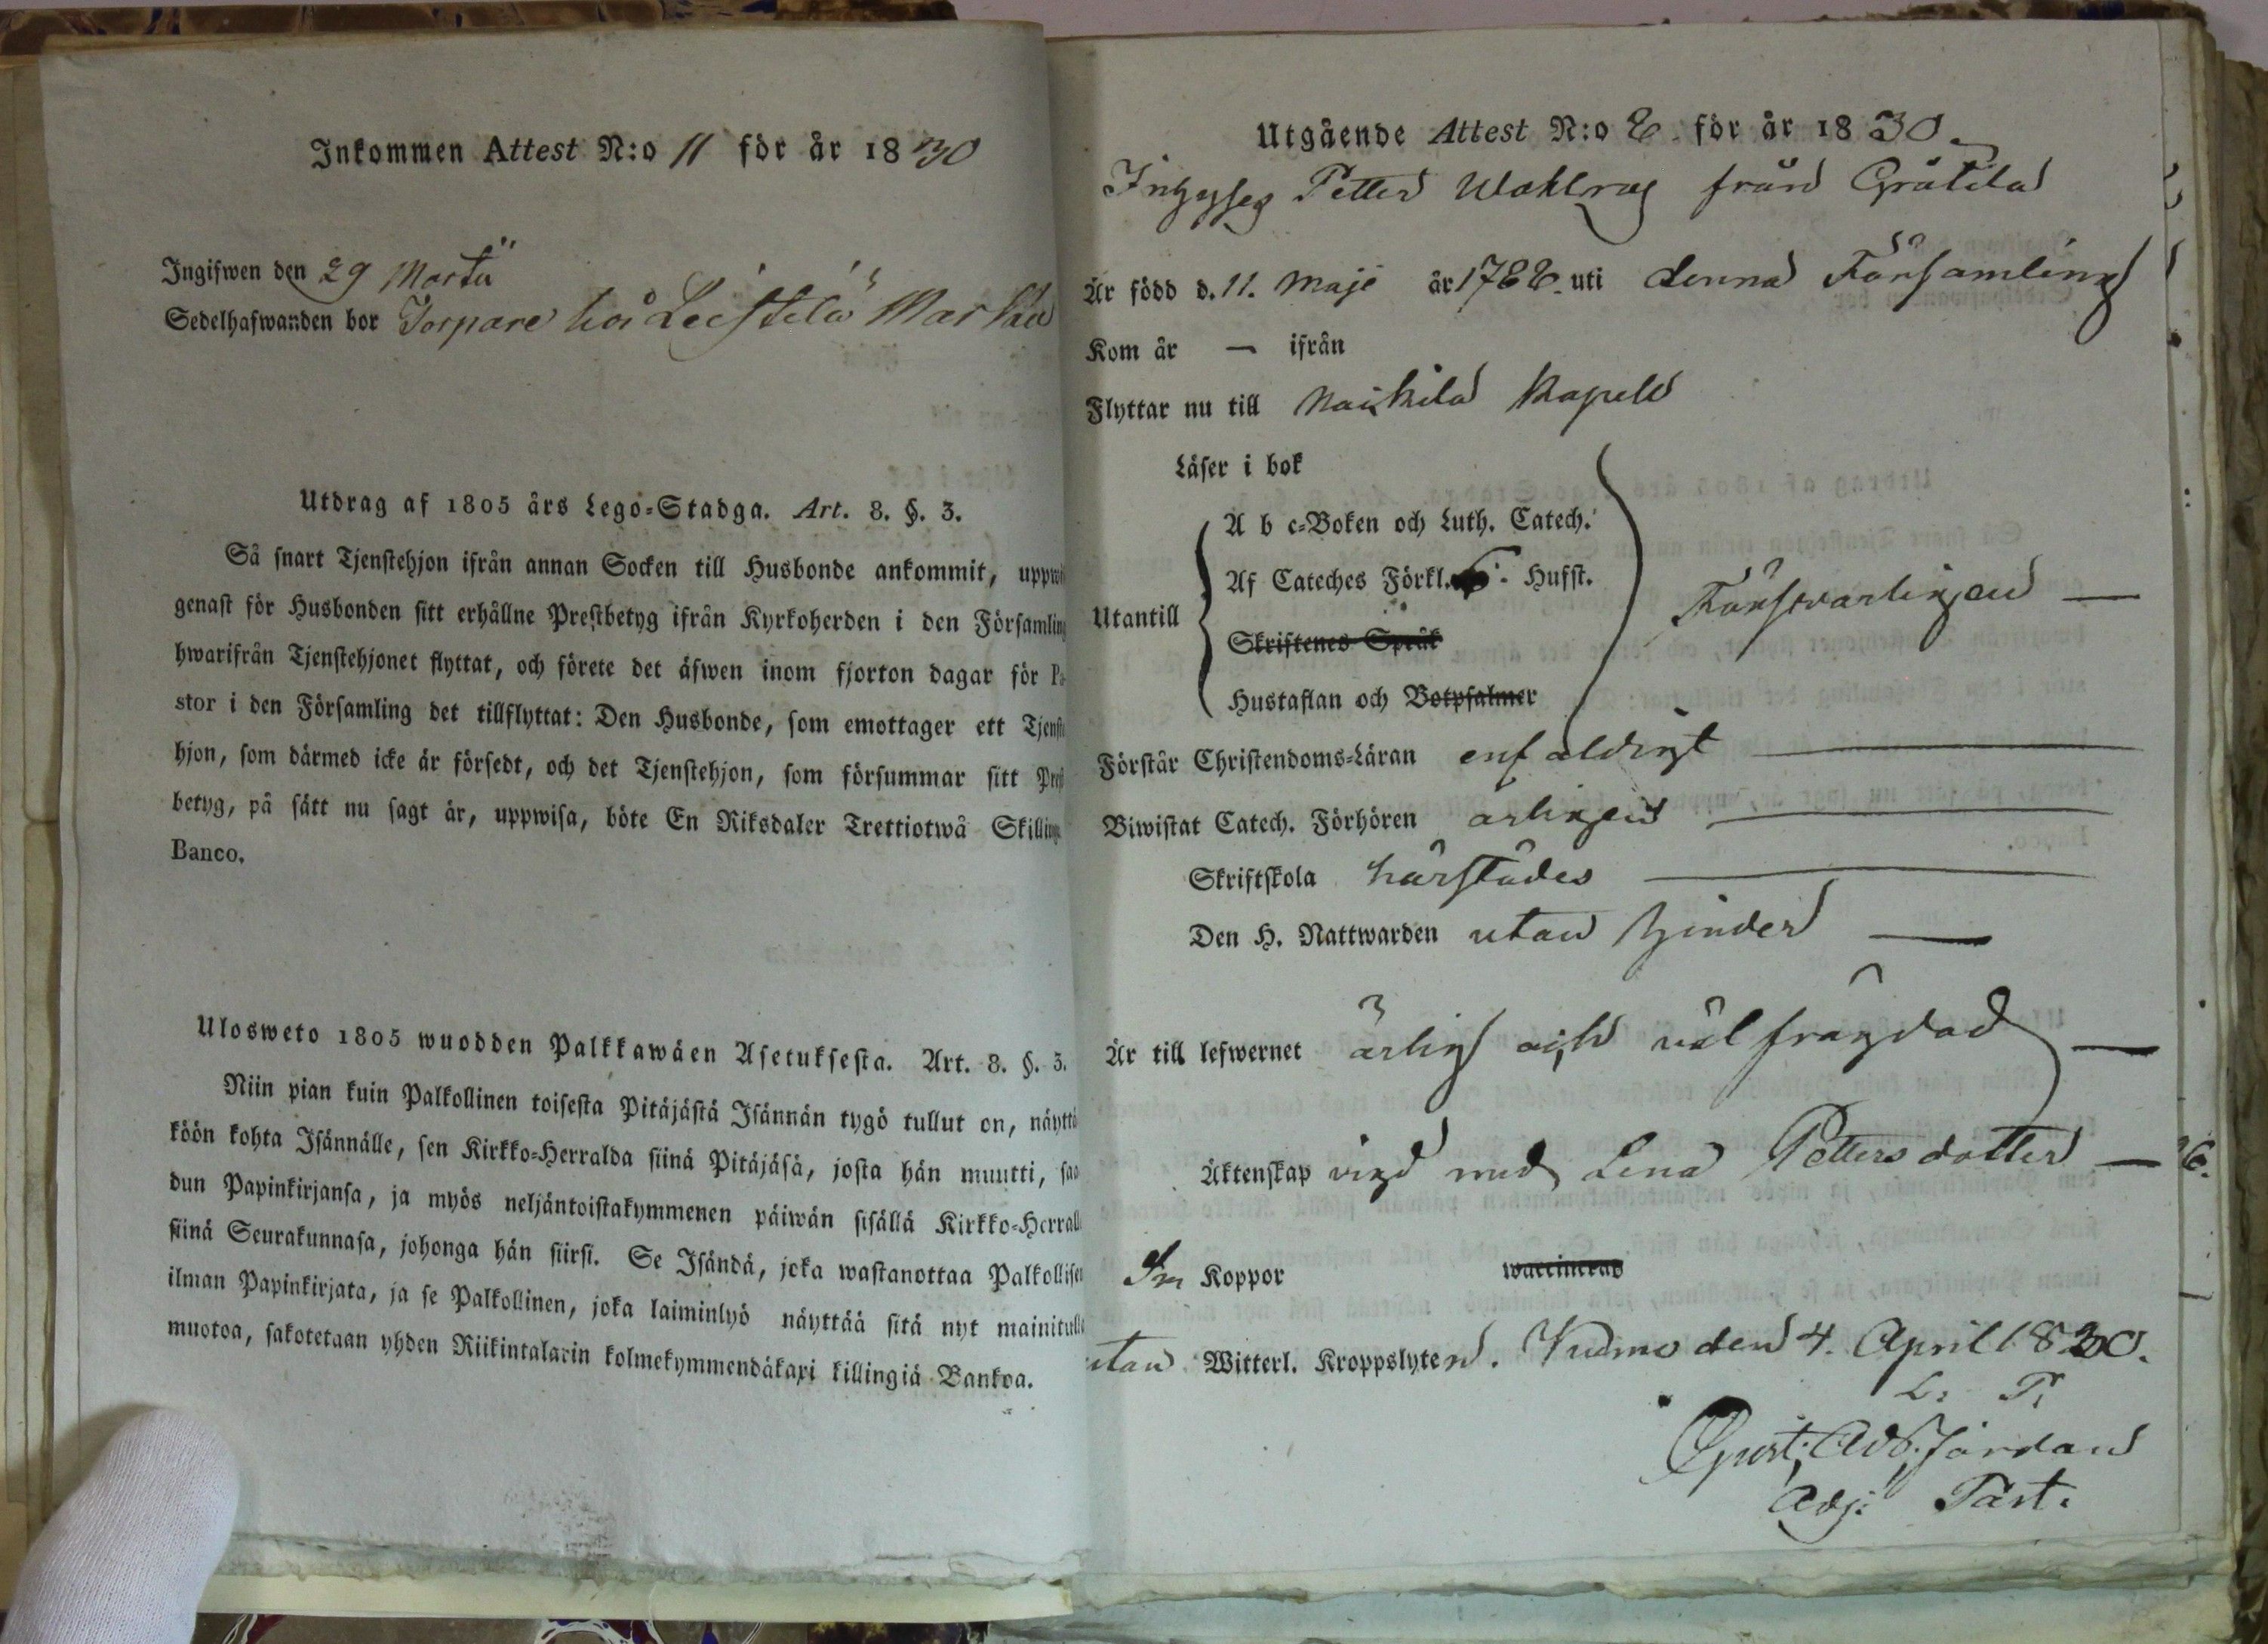 Inkommen Attest N:o 11 för år 1830
Ingifwen den 29 Martii
Sedelhafwanden bor Torpare hos Leistilä
Utdrag af 1805 års Lego-Stadga. Art. 8. §. 3.
Så snart Tjenstehjon ifrån annan Socken till Husbonde ankommit, uppwi
genast för Husbonden sitt erhållne Prestbetyg ifrån Kyrkoherden i den Församling
hwarifrån Tjenstehjonet flyttat, och förete det äfwen inom fjorton dagar för Pa
stor i den Församling det tillflyttat: Den Husbonde, som emottager ett Tjenste
hjon, som därmed icke är försedt, och det Tjenstehjon, som försummar sitt Prest
betyg, på sätt nu sagt är, uppwisa, böte En Riksdaler Trettiotwå Skilling
Banco.
Ulosweto 1805 wuodden Palkkawäen Asetuksesta. Art. 8. §. 3.
Niin pian kuin Palkollinen toisesta Pitäjästä Isännän tygö tullut on, näyttä
köön kohta Isännälle, sen Kirkko-Herralda siinä Pitäjäsä, josta hän muutti, saa
dun Papinkirjansa, ja myös neljäntoistakymmenen päiwän sisällä Kirkko-Herralle
siinä Seurakunnasa, johonga hän siirsi. Se Isändä, joka wastanottaa Palkollisen
ilman Papinkirjata, ja se Palkollinen, joka laiminlyö näyttää sitä nyt mainitulla
muotoa, sakotetaan yhden Riikintalarin kolmekymmendäkaxi killingiä Bankoa.
Utgående Attest N:o 8. för år 1830
Inhyses Petter från
Är född d. 11. Maji år 1788. uti denna Församling
Kom år — ifrån
Flyttar nu till Kapell
Läser i bok
A b c-Boken och Luth. Catech.
Af Cateches Förkl. 6. Hufst.
Utantill
Försvarligen —
Skriftenes Språk
Hustaflan och Botpsalmer
Förstår Christendoms-Läran enfaldigt —
Biwistat Catech. Förhören årligen —
Skriftskola härstädes —
Den H. Nattwarden utan hinder —
Är till lefwernet ärlig och välfrägdad —
Äktenskap vigd med Lena Pettersdotter —
Koppor waccinerad
utan Witterl. Kroppslyten. Kumo den 4. April 1830.
L. P.
Jördan
Adj: Past.